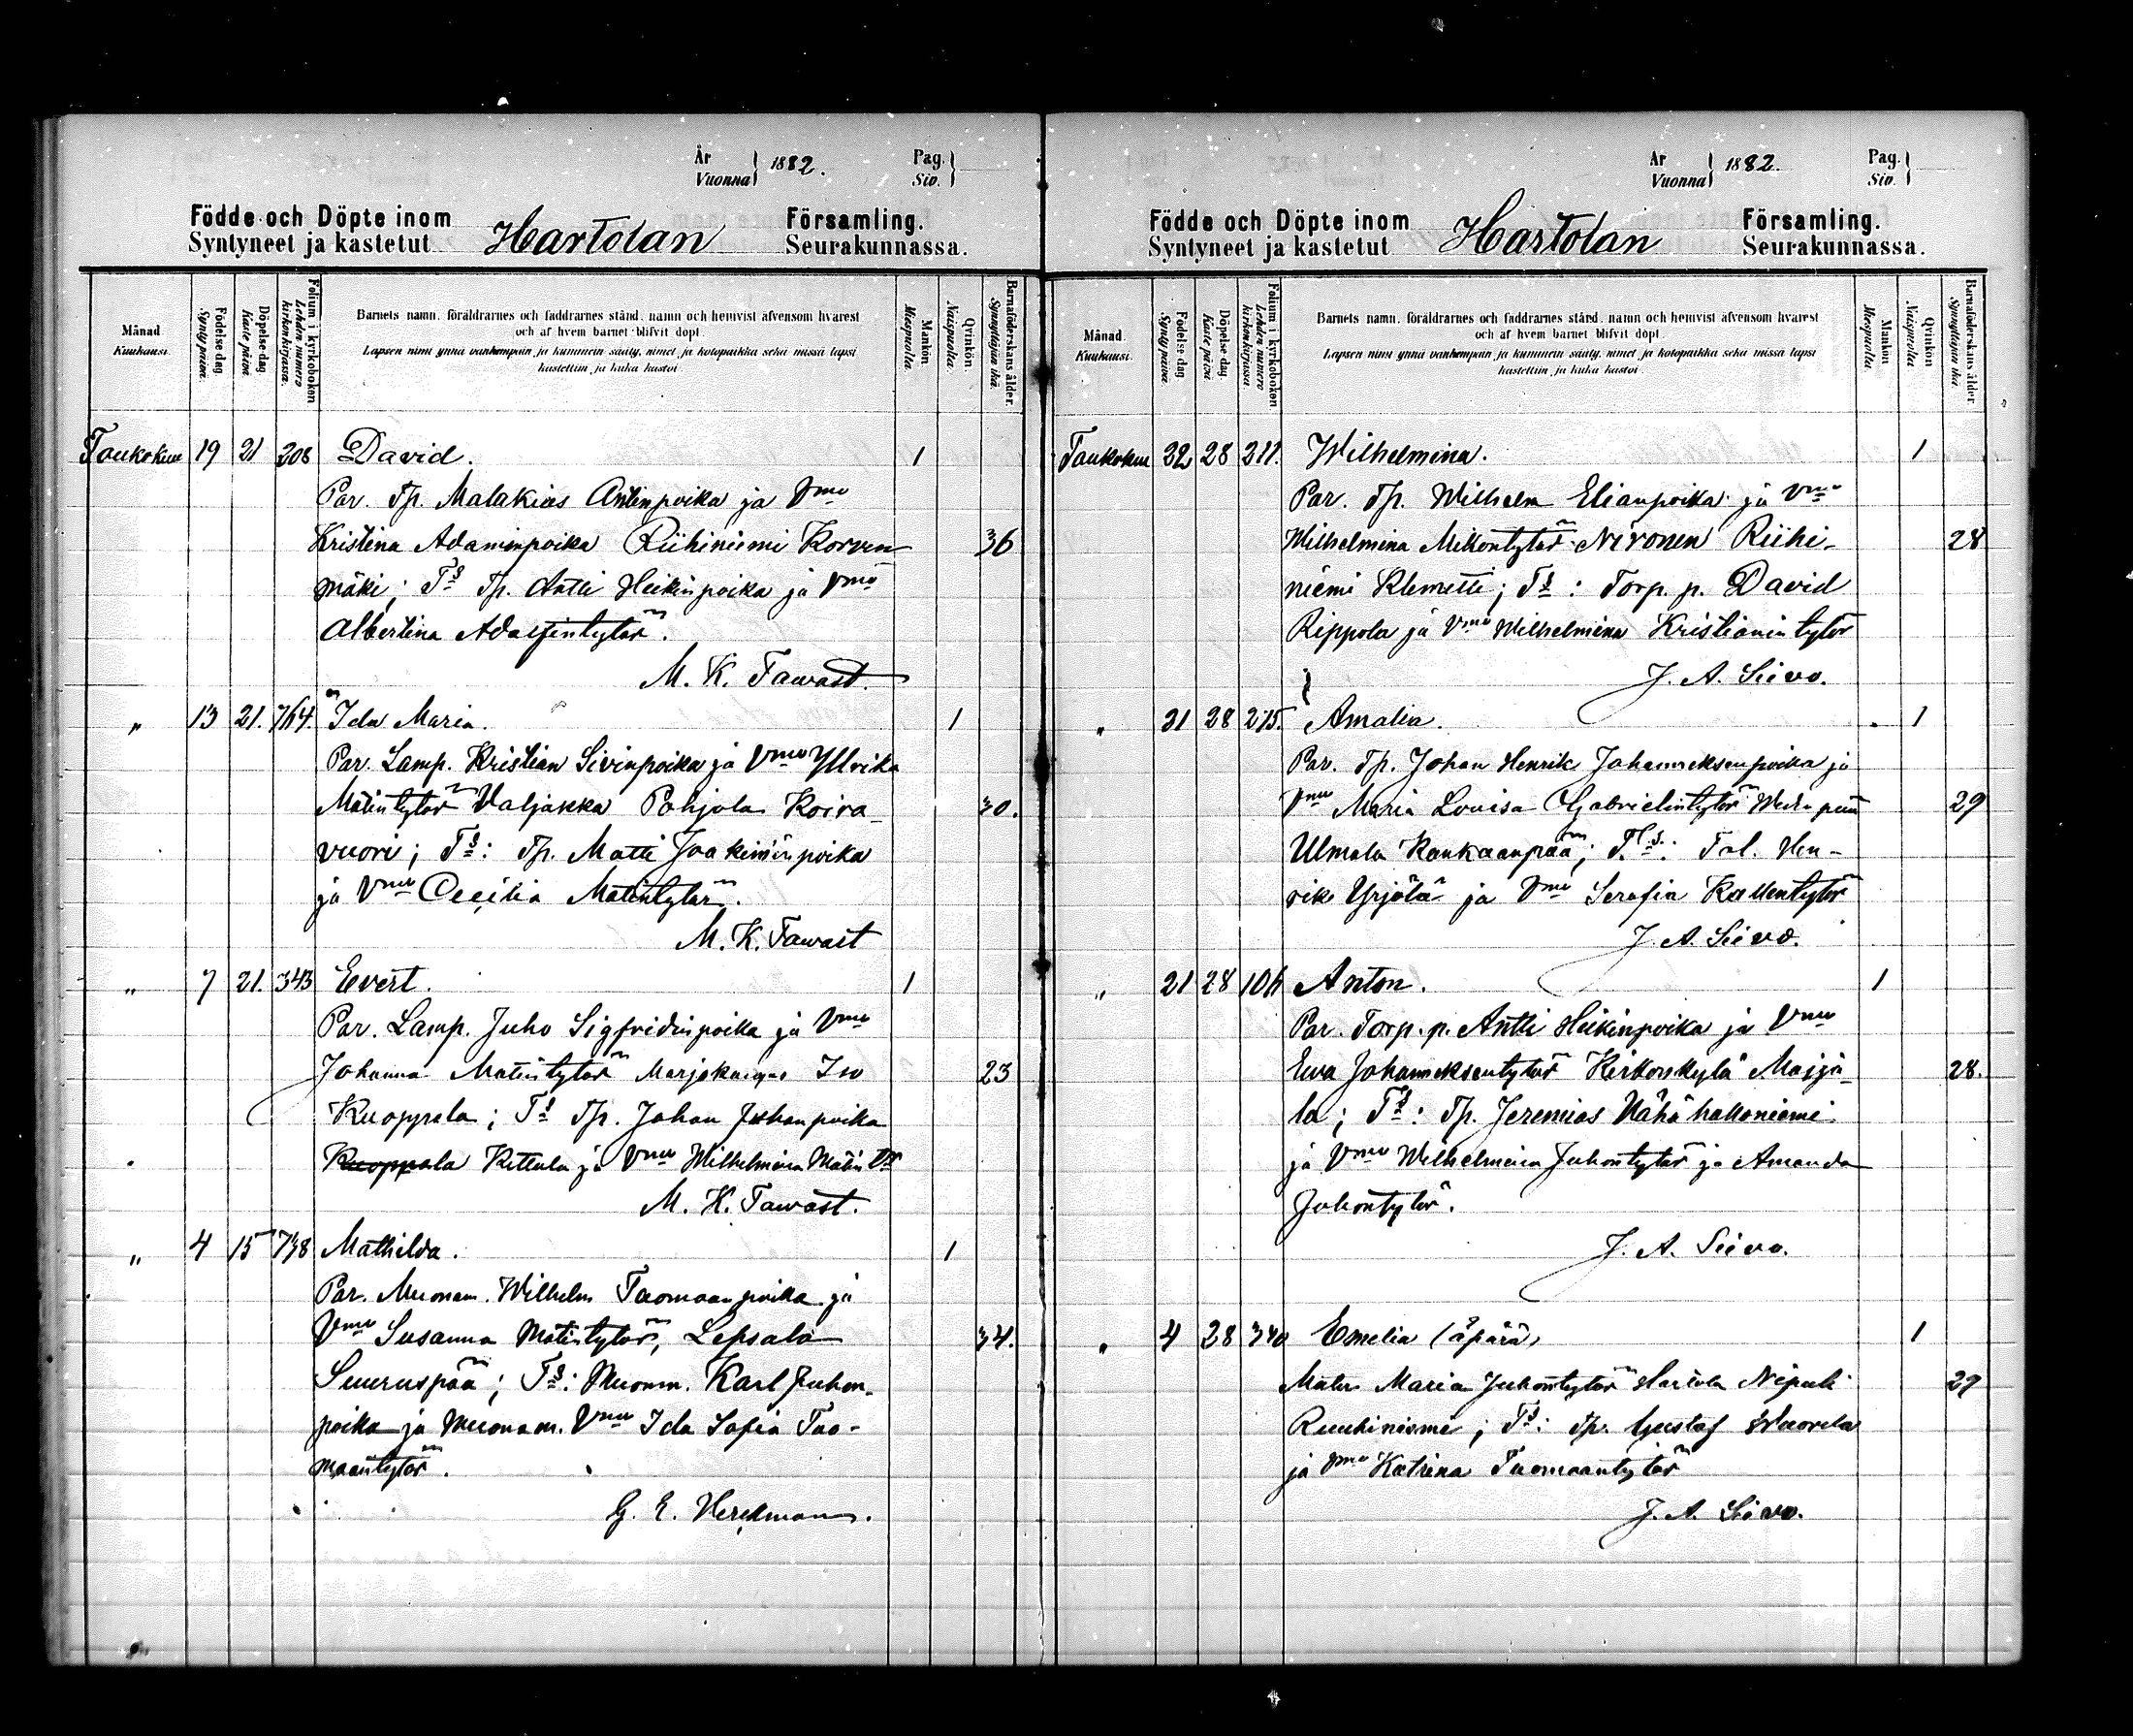 År
Vuonna 1882.
Pag.
Siv.
Födde och Döpte inom
Syntyneet ja kastetut Hartolan
Församling.
Seurakunnassa.
Månad. Kuukausi.
Födelse dag. Synty päivä.
Döpelse dag. Kaste päivä.
Folium i kyrkoboken Lehden numero kirkonkirjassa.
Barnets namn, föräldrarnes och faddrarnes stånd, namn och hemvist äfvensom hvarest
och af hvem barnet blifvit döpt.
Lapsen nimi ynnä vanhempain ja kummein sääty, nimet ja kotopaikka sekä missä lapsi
kastettiin ja kuka kastoi.
Mankön. Miespuolta.
Qvinkön. Naispuolta.
Barnaföderskans ålder. Synnyttäjän ikä.
Toukokuu 19 21 208 David. 1
Par. Tp. Malakias Antinpoika ja Vmo
Kristina Adaminpoika Riihiniemi Korven 36
mäki; Ts Tp. Antti Heikinpoika ja Vmo
Albertina Adolfintytär.
M. K. Tawast.
" 13 21. 764. Ida Maria. 1
Par. Lamp. Kristian Sivinpoika ja Vmo Ulrika
Matintytär Valjakka Pohjola Koira- 30.
vuori; Ts: Tp. Matti Joakiminpoika
ja Vmo Cecilia Matintytär.
M. K. Tawast
" 7 21. 343 Evert. 1
Par. Lamp. Juho Sigfridinpoika ja Vmo
Johanna Matintytär Marjokangas Iso 23
Kuoppala; Ts Tp. Johan Johanpoika
Kuoppala Kittula ja Vmo Wilhelmina Matin Tr
M. K. Tawast.
" 4 15 738 Mathilda. 1
Par. Muonam. Wilhelm Tuomaanpoika ja
Vmo Susanna Matintytär, Lepsala 34.
Suuruspää; Ts: Muonm. Karl Juhon-
poika ja Muonam. Vmo Ida Sofia Tuo-
maantytär.
G. E. Herckman.
År
Vuonna 1882.
Pag.
Siv.
Födde och Döpte inom
Syntyneet ja kastetut Hartolan
Församling.
Seurakunnassa.
Månad. Kuukausi.
Födelse dag. Synty päivä.
Döpelse dag. Kaste päivä.
Folium i kyrkoboken Lehden numero kirkonkirjassa.
Barnets namn, föräldrarnes och faddrarnes stånd, namn och hemvist äfvensom hvarest
och af hvem barnet blifvit döpt.
Lapsen nimi ynnä vanhempain ja kummein sääty, nimet ja kotopaikka sekä missä lapsi
kastettiin ja kuka kastoi.
Mankön Miespuolta.
Qvinkön Naispuolta.
Barnaföderskans ålder. Synnyttäjän ikä.
Toukokuu 22 28 211. Wilhelmina. 1
Par. Tp. Wilhelm Elianpoika ja Vmo
Wilhelmina Mikontytär Nironen Riihi- 28
niemi Klemetti; Ts: Torp. p. David
Rippola ja Vmo Wilhelmina Kristianintytär
J. A. Siivo.
" 21 28 275. Amalia. 1
Par. Tp. Johan Henrik Johanneksenpoika ja
Vmo Maria Lovisa Gabrielintytär 29
Ulmala Kankaanpää; Tls: Tal. Hen-
rik Yrjölä ja Vmo Serafia Kallentytär
J. A. Siivo.
" 21 28 106 Anton. 1
Par. Torp. p. Antti Heikinpoika ja Vmo
Ewa Johanneksentytär Kirkonkylä Maijä- 28.
la; Ts: Tp. Jeremias Vähähalloniemi
ja Vmo Wilhelmina Juhontytär ja Amanda
Juhontytär.
J. A. Siivo.
" 4 28 340 Emelia (äpärä) 1
Mater Maria Juhontytär Hartola Nipuli 29
Ruuhiniemi; Ts: Tp. Gustaf
ja Vmo Katrina Tuomaantytär
J. A. Siivo.